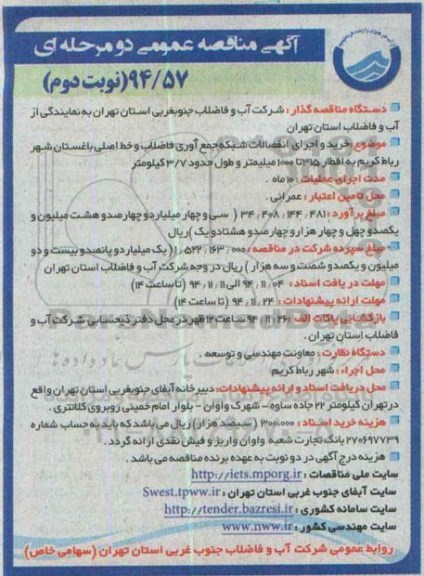 آگهی مناقصه عمومی دو مرحله ای
۹۴/۵۷(نوبت دوم)
دستگاه مناقصه گذار : شرکت آب و فاضلاب جنوبغربی استان تهران به نمایندگی از
آب و فاضلاب استان تهران
موضوع : خرید و اجرای انفصالات شبکه جمع آوری فاضلاب و خط اصلی باغستان شهر
رباط کریم به اقطار ۳۱۵ تا ۱۰۰۰ میلیمتر و طول حدود ۳/۷ کیلومتر
مدت اجرای عملیات : ۱۰ ماه .
محل تامین اعتبار : عمرانی .
مبلغ برآورد : ۳۴،۴۰۸،۱۴۴،۴۸۱ ( سی و چهار میلیارد و چهارصد و هشت میلیون و
یکصد و چهل و چهار هزار و چهارصد و هشتاد و یک ) ریال
مبلغ سپرده شرکت در مناقصه : ۱،۵۲۲،۱۶۳،۰۰۰ ( یک میلیارد و پانصد و بیست و دو
میلیون و یکصد و شصت و سه هزار ) ریال در وجه شرکت آب و فاضلاب استان تهران
مهلت دریافت اسناد : ۹۴،۱۱،۰۴ الی ۹۴،۱۱،۱۱ (تا ساعت ۱۴)
مهلت ارائه پیشنهادات : ۹۴،۱۱،۲۴ (تا ساعت ۱۴)
بازگشایی پاکات الف : ۹۴،۱۱،۲۶ ساعت ۱۲ ظهر در محل دفتر ذیحسابی شرکت آب و
فاضلاب استان تهران .
دستگاه نظارت : معاونت مهندسی و توسعه .
محل اجراء : شهر رباط کریم
محل دریافت اسناد و ارائه پیشنهادات: دبیرخانه آبفای جنوبغربی استان تهران واقع
در تهران کیلومتر ۲۲ جاده ساوه - شهرک واوان - بلوار امام خمینی روبروی کلانتری .
هزینه خرید اسناد : ۳۰۰،۰۰۰ ( سیصد هزار) ریال می باشد که باید به حساب شماره
۲۷۰۶۹۷۷۳۹ بانک تجارت شعبه واوان واریز و فیش نقدی ارائه گردد .
هزینه درج آگهی در دو نوبت به عهده برنده مناقصه می باشد .
سایت ملی مناقصات : http://iets.mporg.ir
سایت آبفای جنوب غربی استان تهران : Swest.tpww.ir
سایت سامانه کشوری : http://tender.bazresi.ir
سایت مهندسی کشور : www.nww.ir
روابط عمومی شرکت آب و فاضلاب جنوب غربی استان تهران (سهامی خاص)